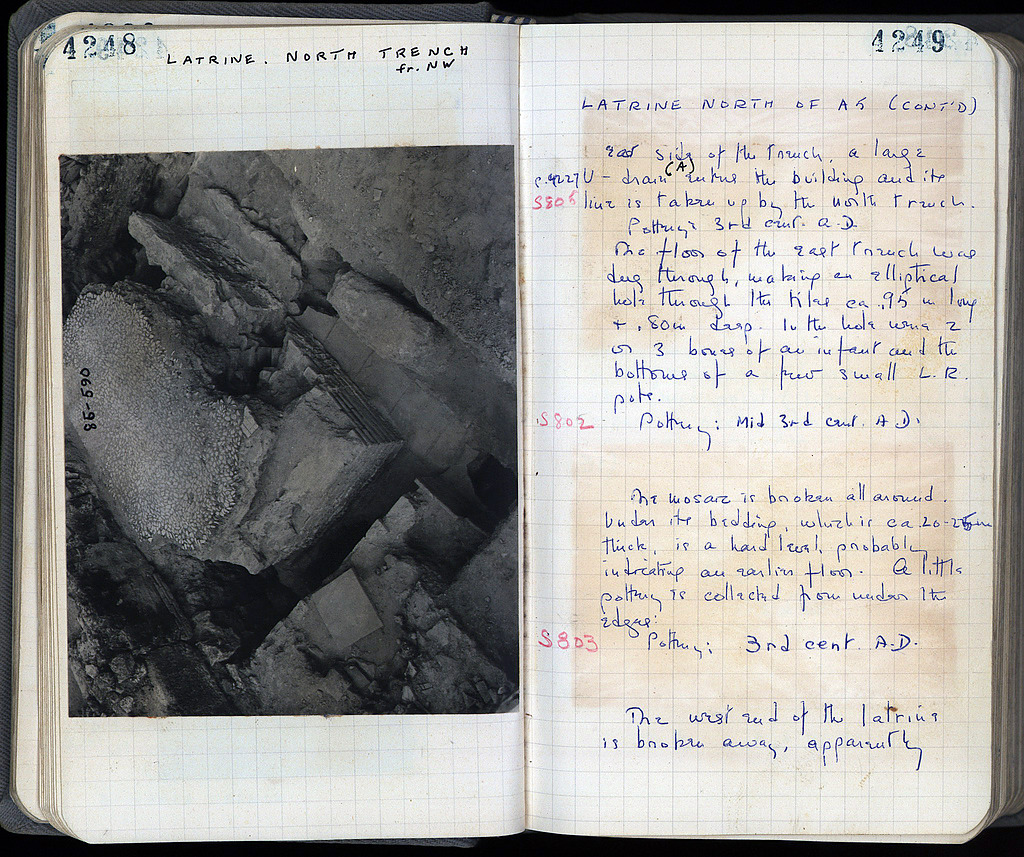 4248
LATRINE. NORTH TRENCH
fr. NW
85-590
4249
LATRINE NORTH OF A5 (CONT'D)
east side of the trench, a large
(A)
p.4227 U-drain enters the building and its
S805 line is taken up by the north trench.
Pottery: 3rd cent. A.D.
The floor of the east trench was
dug through, making an elliptical
hole through the tiles ca .95 m long
+ .80m deep. In the hole were 2
or 3 bones of an infant and the
bottoms of a few small L.R.
pots.
S802 Pottery: Mid 3rd cent. A.D.
The mosaic is broken all around.
Under its bedding, which is ca .20-25m
thick, is a hard level, probably
indicating an earlier floor. A little
pottery is collected from under the
edges:
S803 Pottery: 3rd cent. A.D.
The west end of the latrine
is broken away, apparently